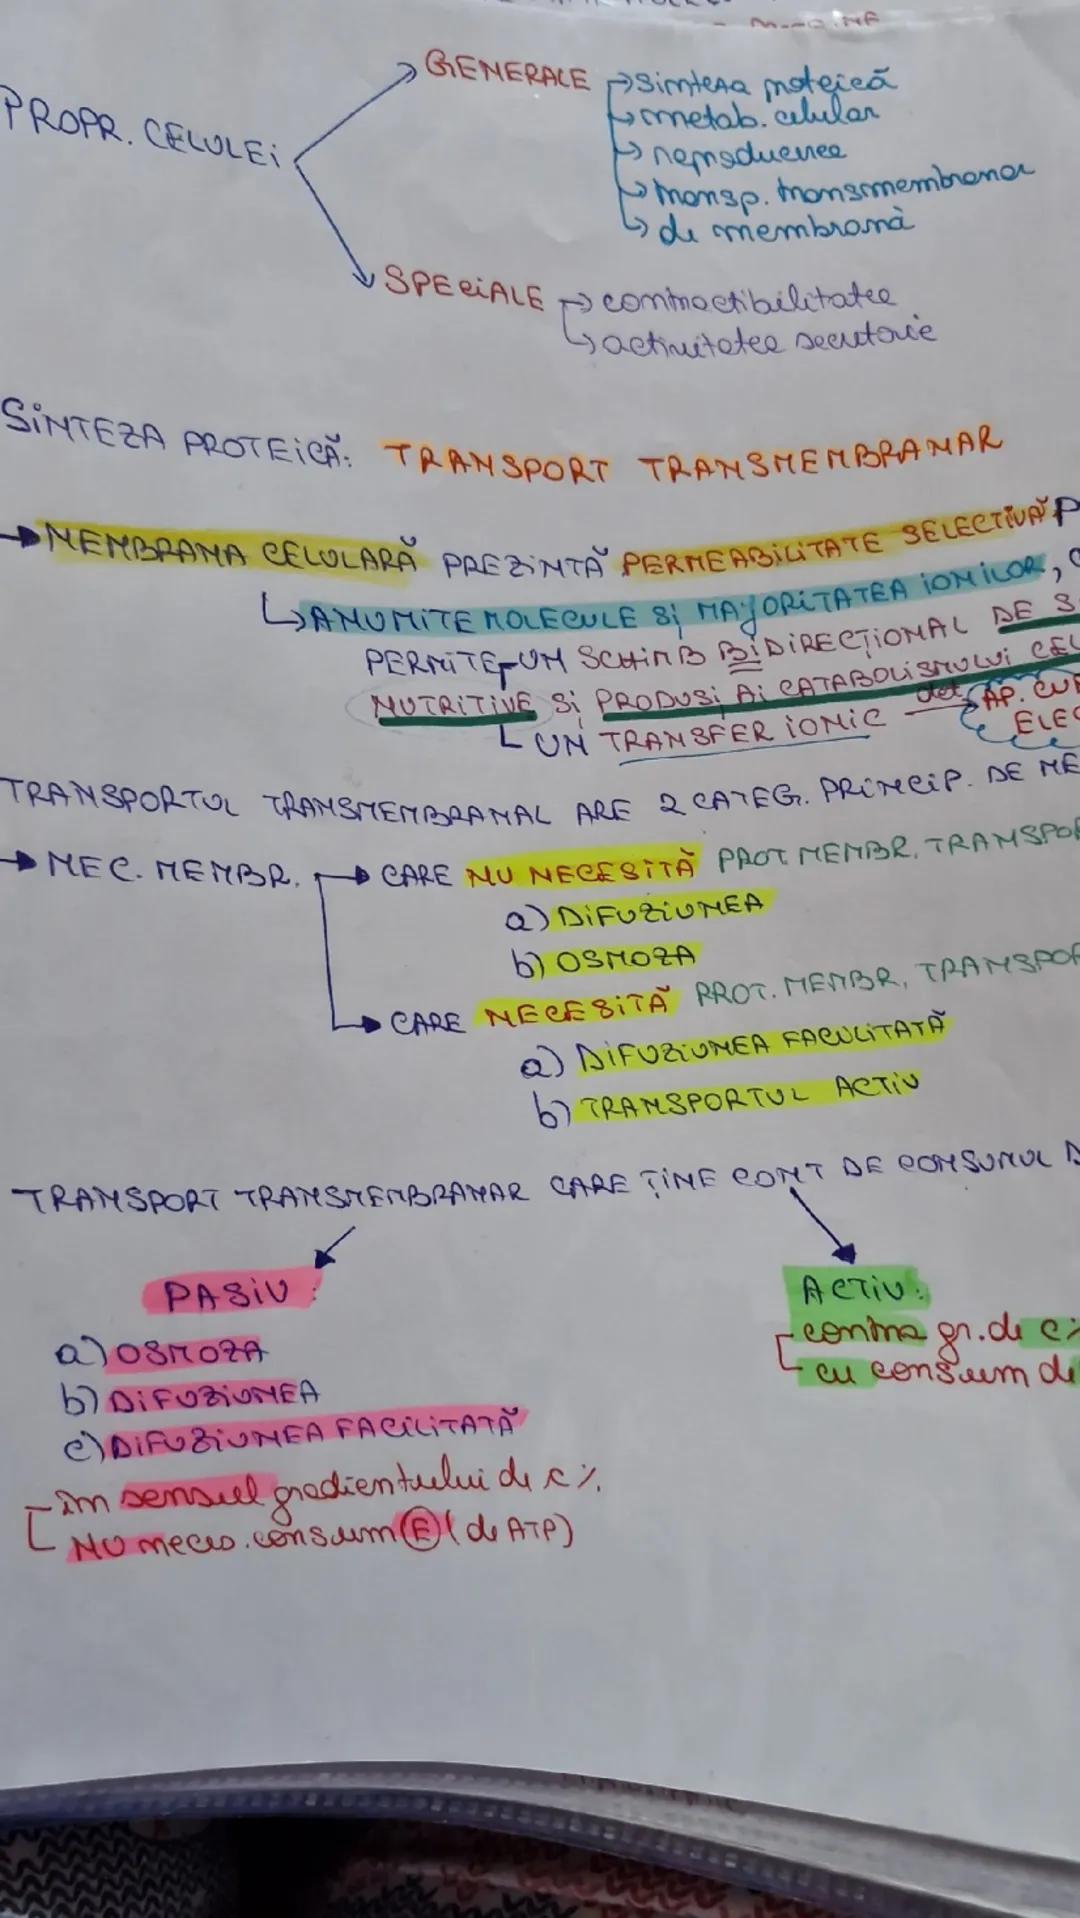 PROPR. CELULEI
GENERALE → sinteza proteică
→ metab. celular
→ reproducerea
→ transp. transmembranar
→ de membrană
SPECIALE → contractibilitatea
→ activitatea secretorie
SINTEZA PROTEICĂ: TRANSPORT TRANSMEMBRANAR
→ MEMBRANA CELULARĂ PREZINTĂ PERMEABILITATE SELECTIVĂ P
↳ ANUMITE MOLECULE ȘI MAJORITATEA IONILOR,
PERMITE UN SCHIMB BIDIRECȚIONAL DE S
NUTRITIVE ȘI PRODUȘI AI CATABOLISMULUI CEL
UN TRANSFER IONIC det. → AP. CUR
ELEC
TRANSPORTUL TRANSMEMBRANAL ARE 2 CATEG. PRINCIP. DE ME
→ MEC. MEMBR. → CARE NU NECESITĂ PROT. MEMBR. TRANSPOR
a) DIFUZIUNEA
b) OSMOZA
→ CARE NECESITĂ PROT. MEMBR. TRANSPOR
a) DIFUZIUNEA FACULITATĂ
b) TRANSPORTUL ACTIV
TRANSPORT TRANSMEMBRANAR CARE ȚINE CONT DE CONSUMUL D
PASIV:
a) OSMOZA
b) DIFUZIUNEA
c) DIFUZIUNEA FACILITATĂ
- în sensul gradientului de c%
NU neces. consum E (de ATP)
ACTIV:
- contra gr. de c%
- cu consum de